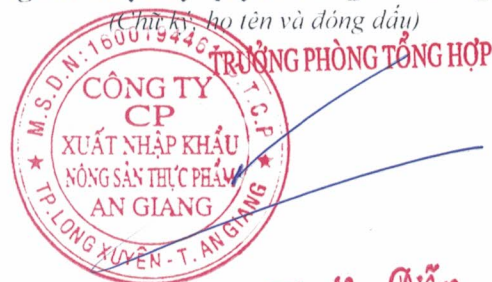 (Chữ ký, họ tên và đóng dấu)
TRƯỞNG PHÒNG TỔNG HỢP
M.S.D.N:160019446
C.T.C.P
CÔNG TY
CP
XUẤT NHẬP KHẨU
NÔNG SẢN THỰC PHẨM
AN GIANG
TP.LONG XUYÊN - T. AN GIANG